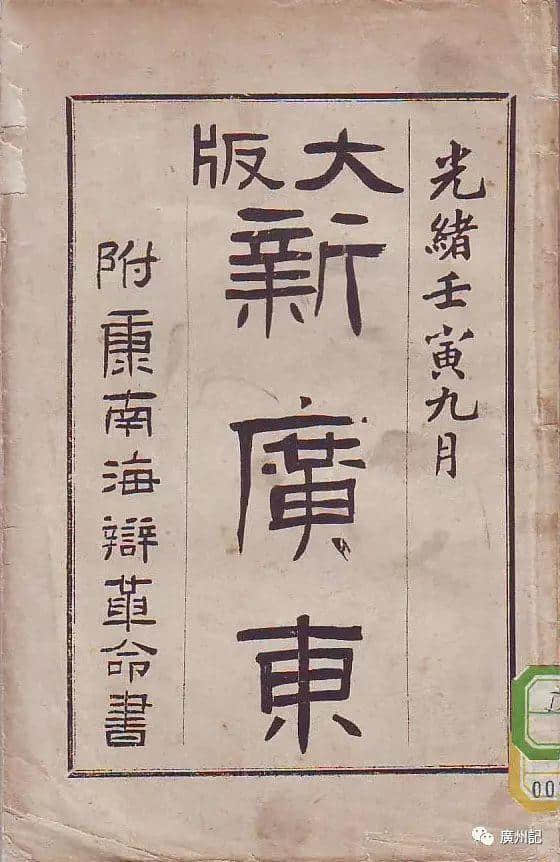 光緒壬寅九月
大版
新廣東
附康南海辯革命書
00
廣州記